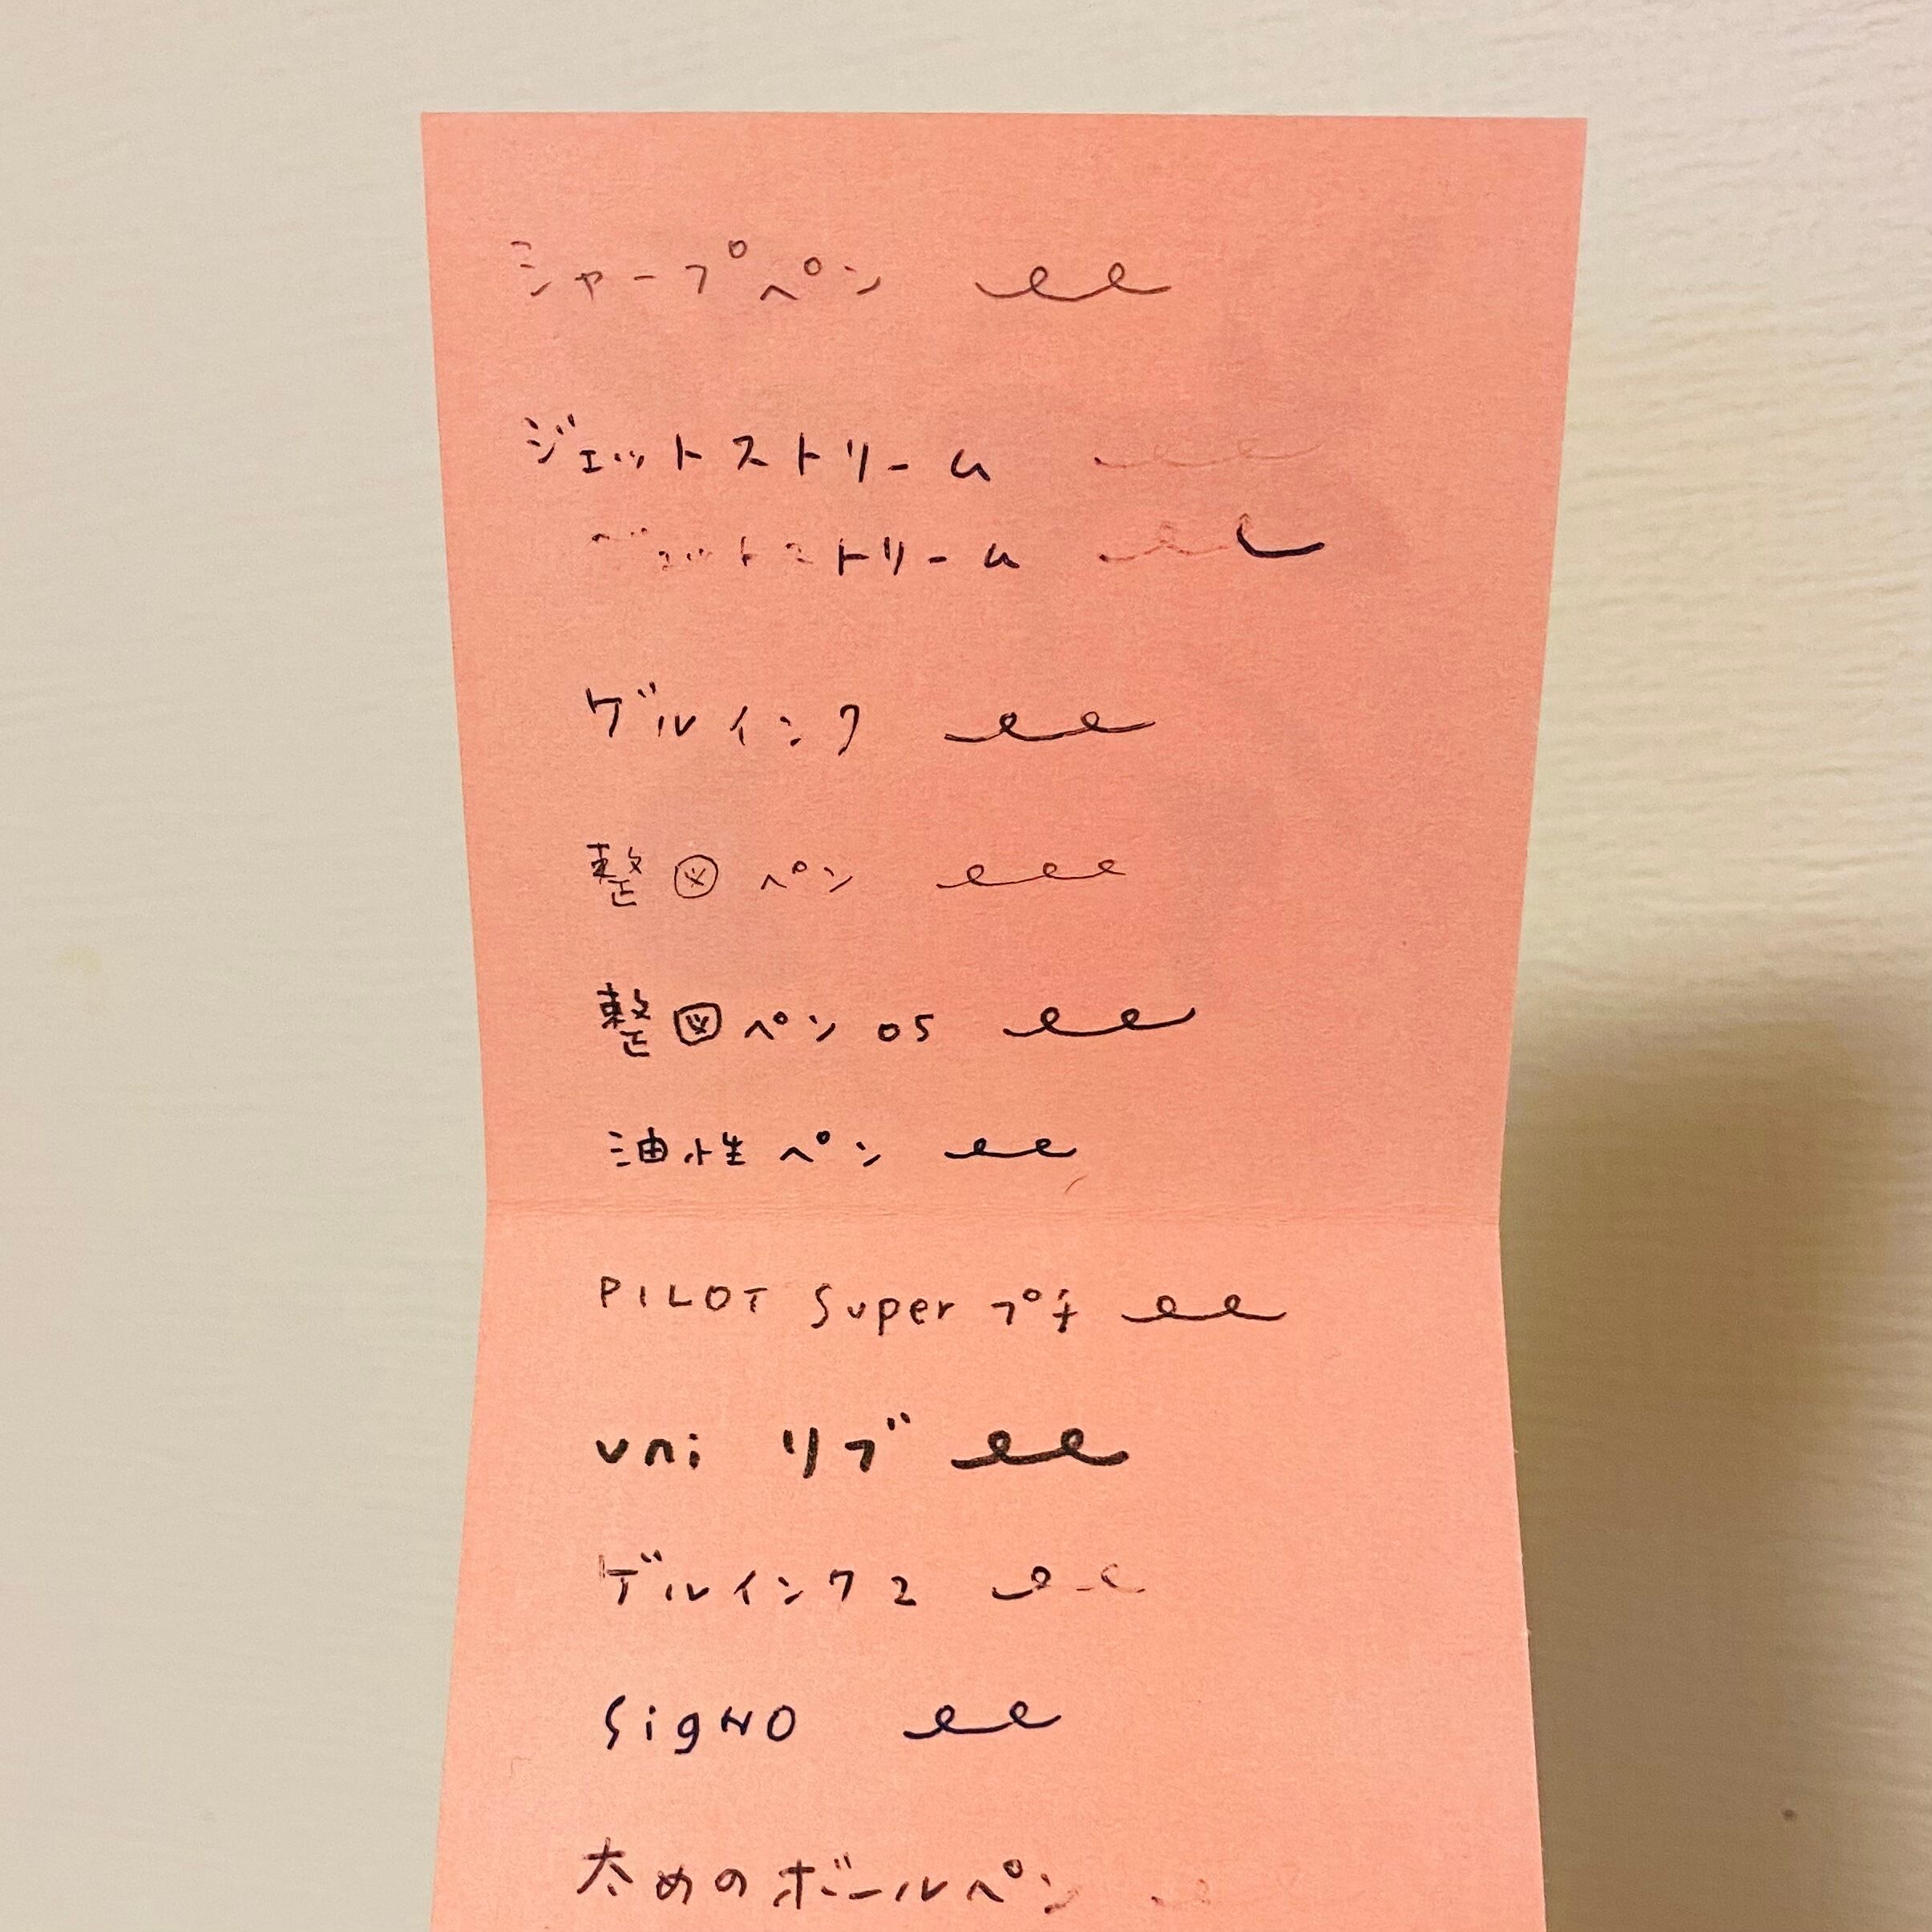 シャープペン
ジェットストリーム
ジェットストリーム
ゲルインク
整図ペン
整図ペン 05
油性ペン
PILOT Super プチ
uni リブ
ゲルインク2
SigNO
太めのボールペン